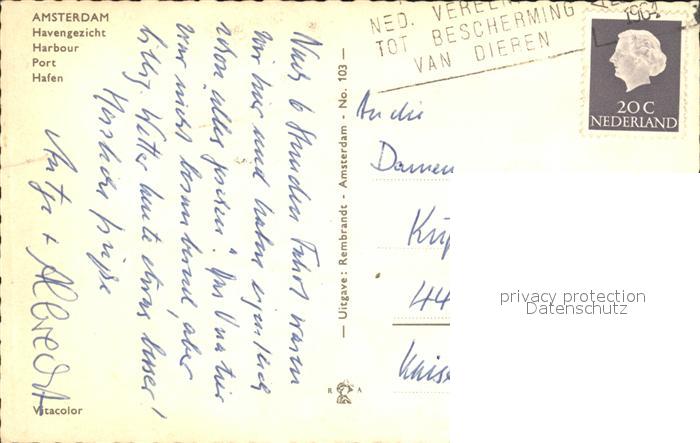 AMSTERDAM
Havengezicht
Harbour
Port
Hafen
Nach 6 Stunden Fahrt waren
wir hier und haben eigentlich
schon alles gesehen! Das
war nicht berauschend, aber
Wetter heute etwas besser!
Herzliche Grüße
Antje + Albrecht
Vitacolor
— Uitgave: Rembrandt - Amsterdam - No. 103 —
R A
NED.
TOT BESCHERMING
VAN DIEREN
1964
20 C
NEDERLAND
An die
Damen
44
privacy protection
Datenschutz